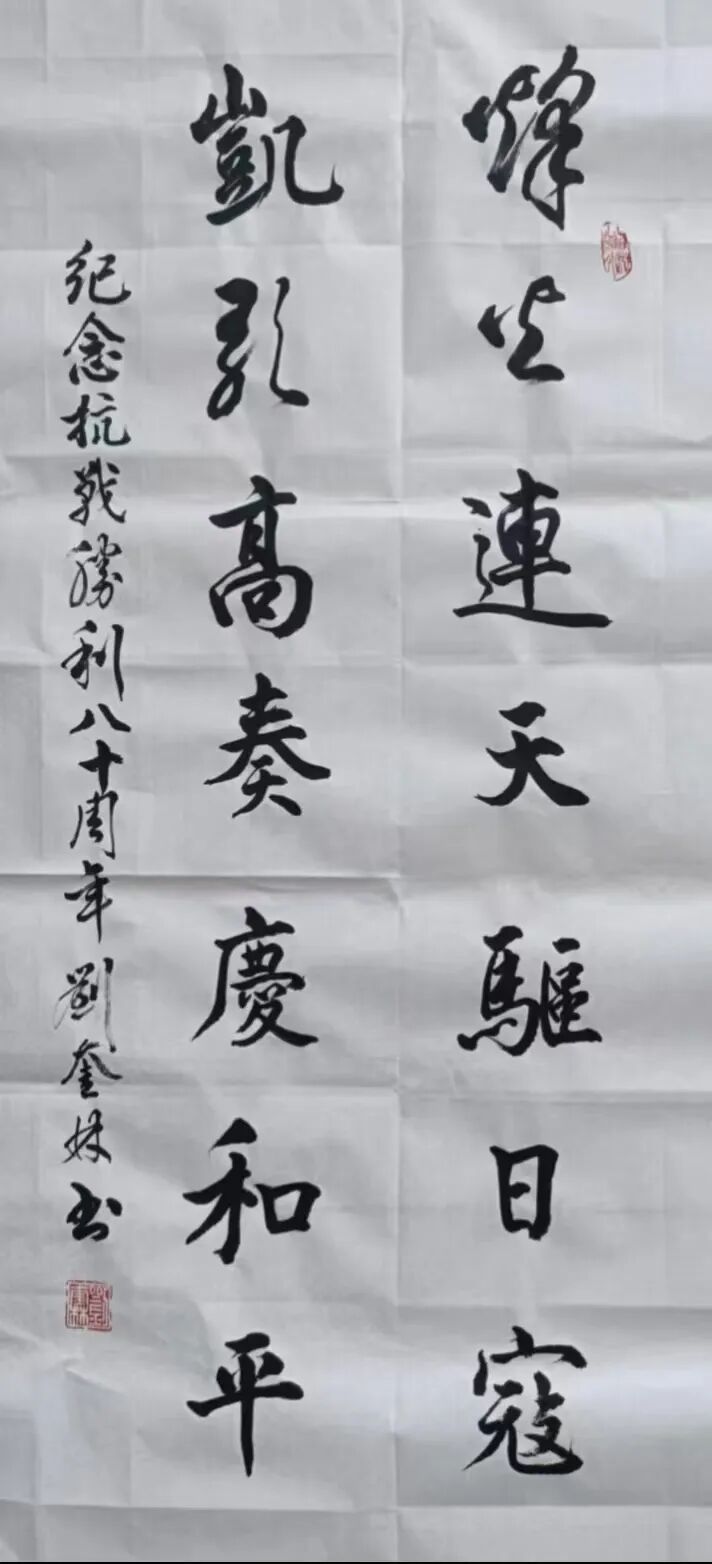 烽火連天驅日寇
凱歌高奏慶和平
紀念抗戰勝利八十周年劉奎林书